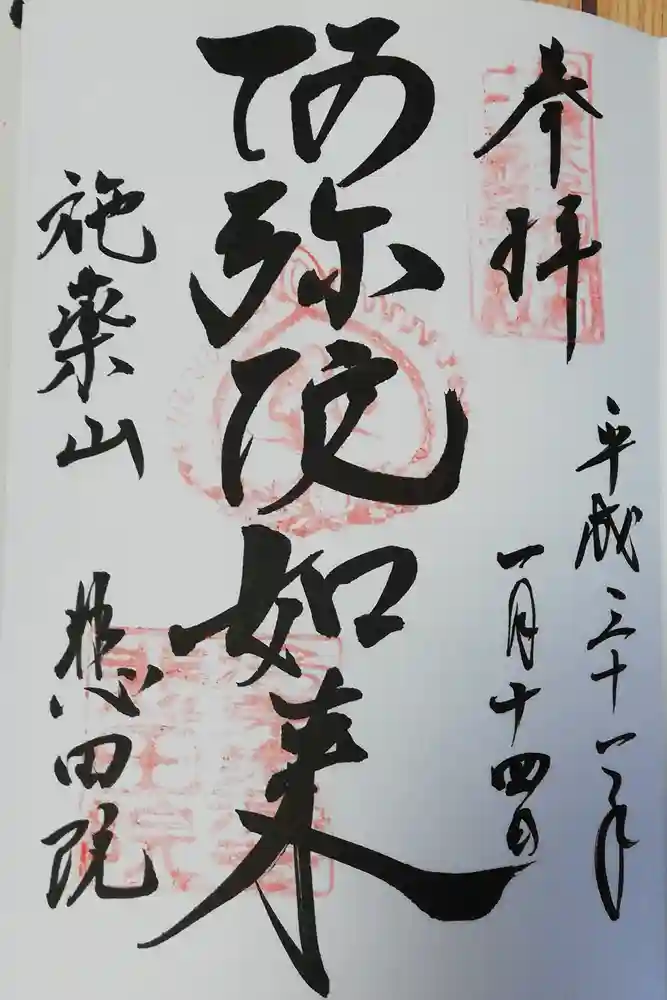 奉拝
平成三十一年
一月十四日
阿弥陀如来
施薬山
悲田院